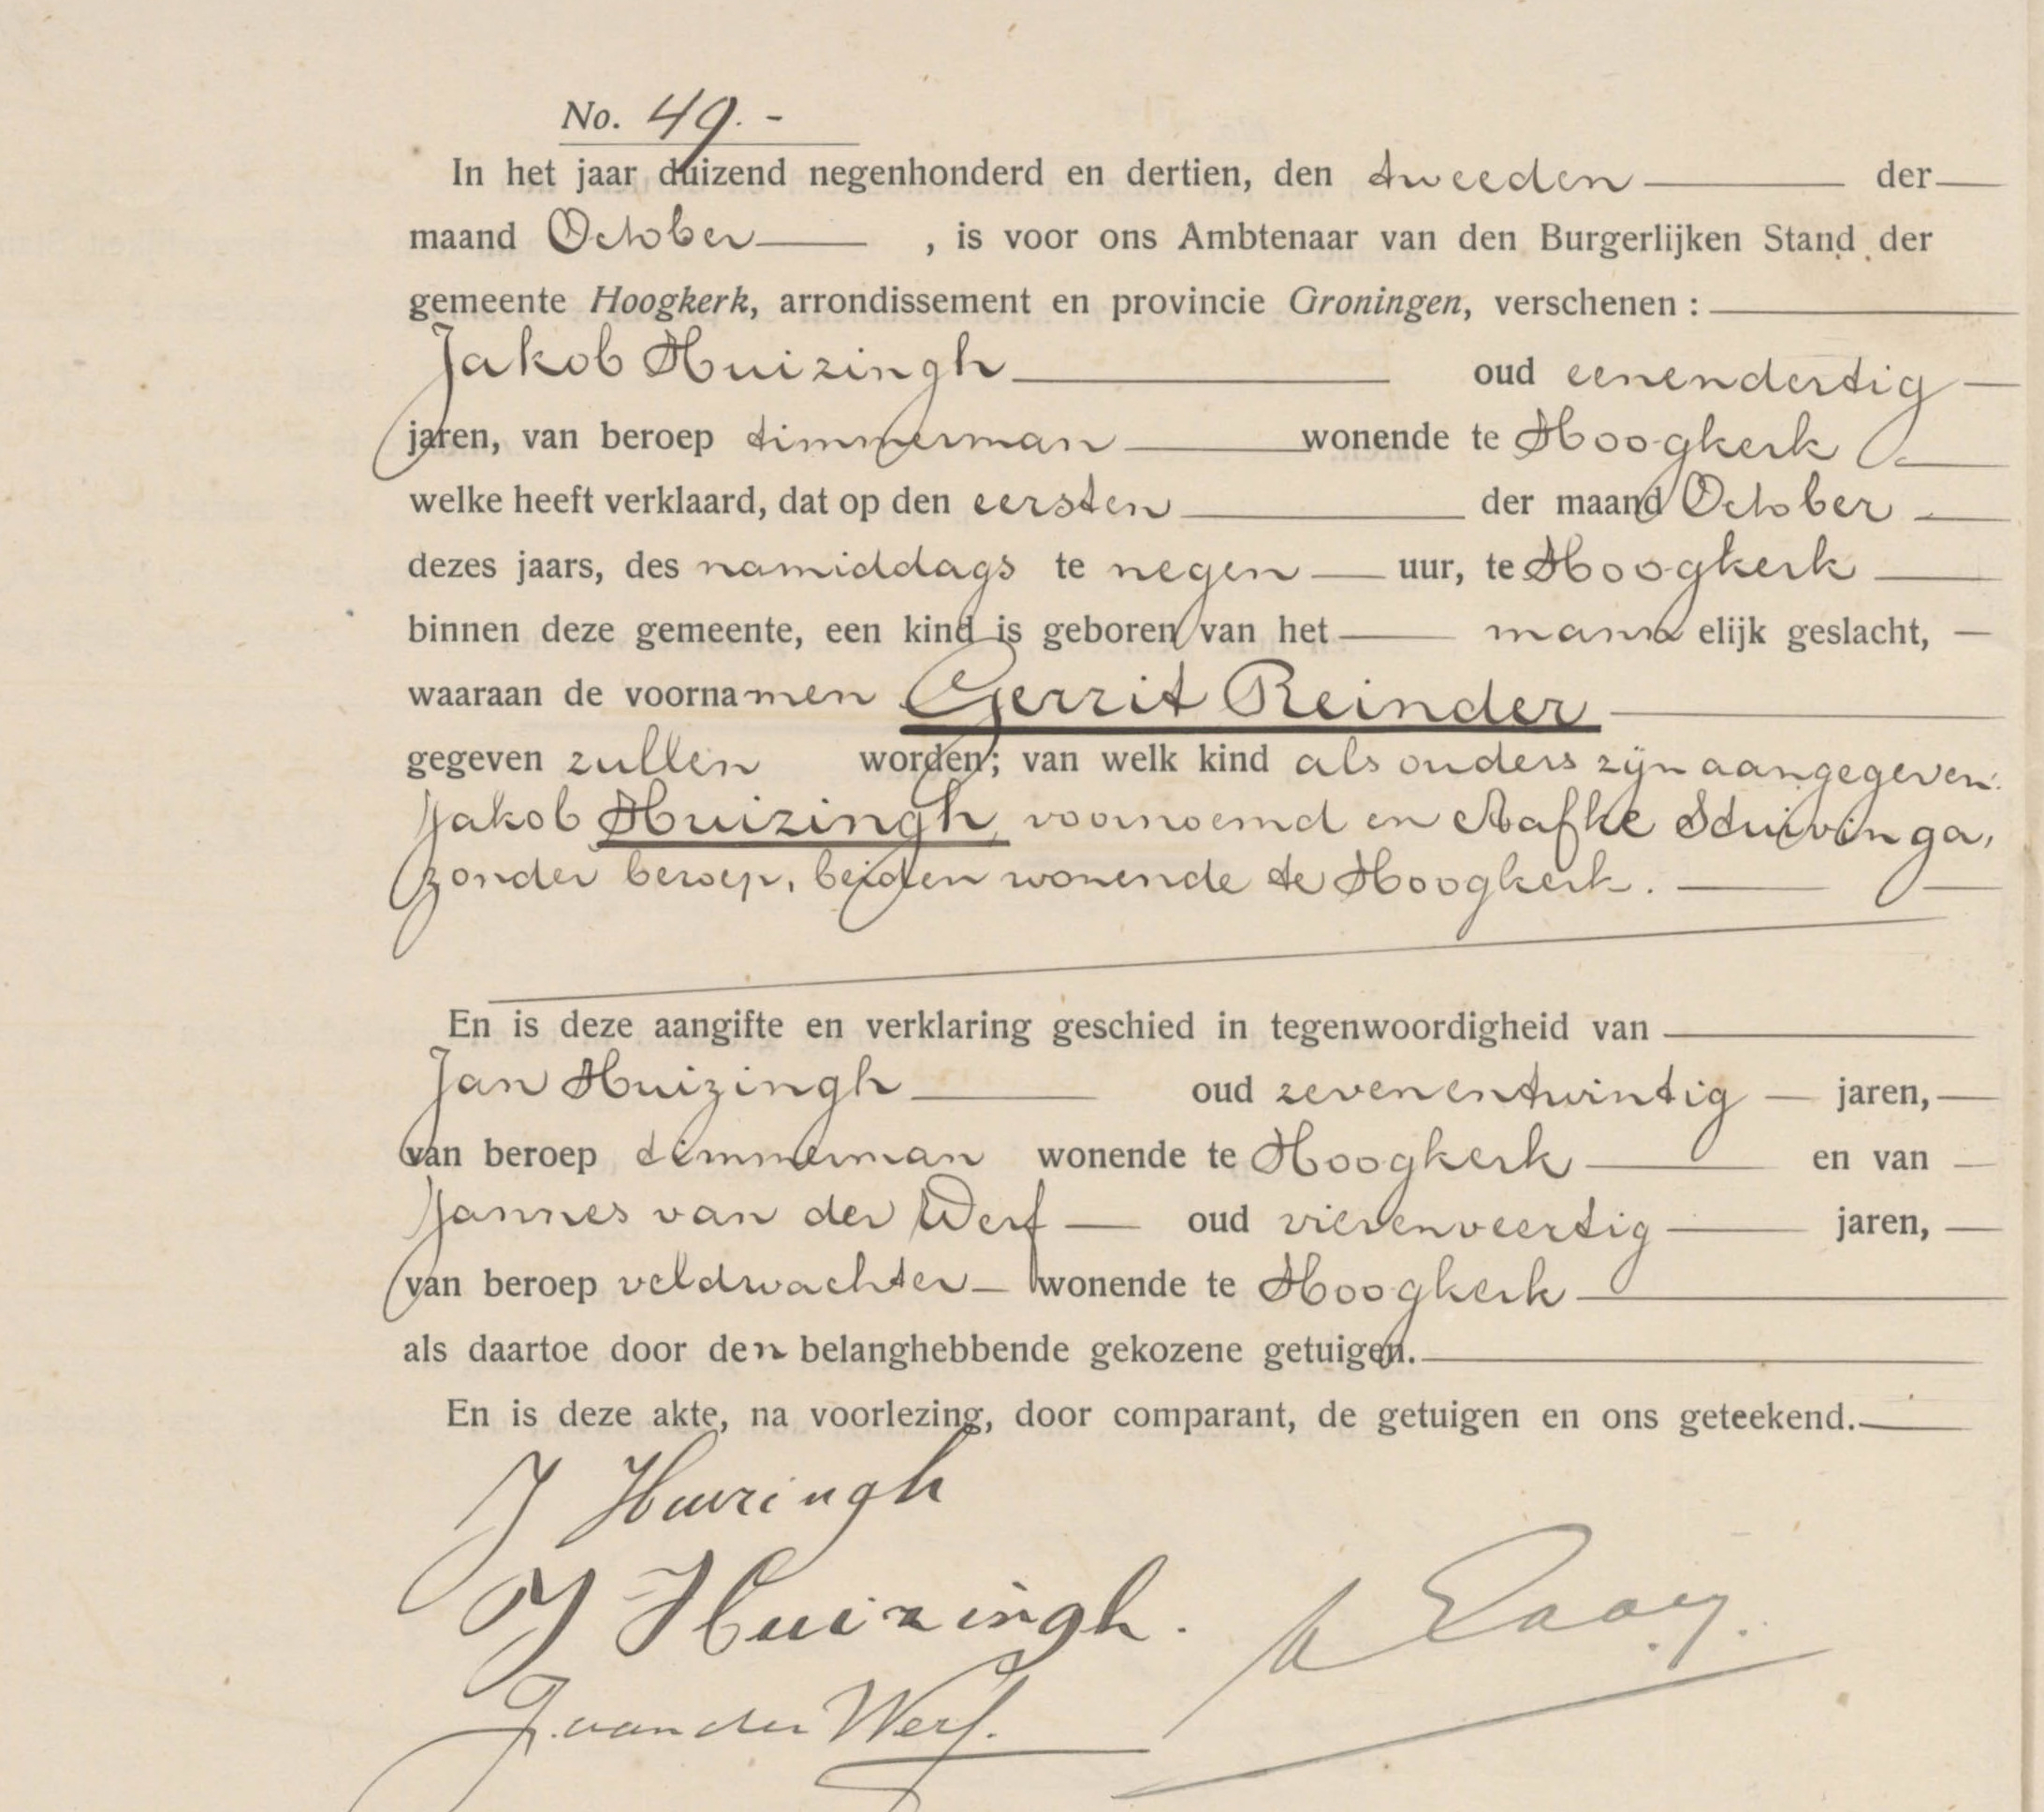 No. 49. -
In het jaar duizend negenhonderd en dertien, den tweeden der
maand October, is voor ons Ambtenaar van den Burgerlijken Stand der
gemeente Hoogkerk, arrondissement en provincie Groningen, verschenen :
Jakob Huizingh oud eenendertig
jaren, van beroep timmerman wonende te Hoogkerk
welke heeft verklaard, dat op den eersten der maand October
dezes jaars, des namiddags te negen uur, te Hoogkerk
binnen deze gemeente, een kind is geboren van het mannelijk geslacht,
waaraan de voornamen Gerrit Reinder
gegeven zullen worden; van welk kind als ouders zijn aangegeven:
Jakob Huizingh, voornoemd en Aafke Stuivinga,
zonder beroep, beiden wonende te Hoogkerk.
En is deze aangifte en verklaring geschied in tegenwoordigheid van
Jan Huizingh oud zevenentwintig jaren,
van beroep timmerman wonende te Hoogkerk en van
Jannes van der Werf oud vierenveertig jaren,
van beroep veldwachter wonende te Hoogkerk
als daartoe door den belanghebbende gekozene getuigen.
En is deze akte, na voorlezing, door comparant, de getuigen en ons geteekend.
J Huizingh
J Huizingh.
J. van der Werf.